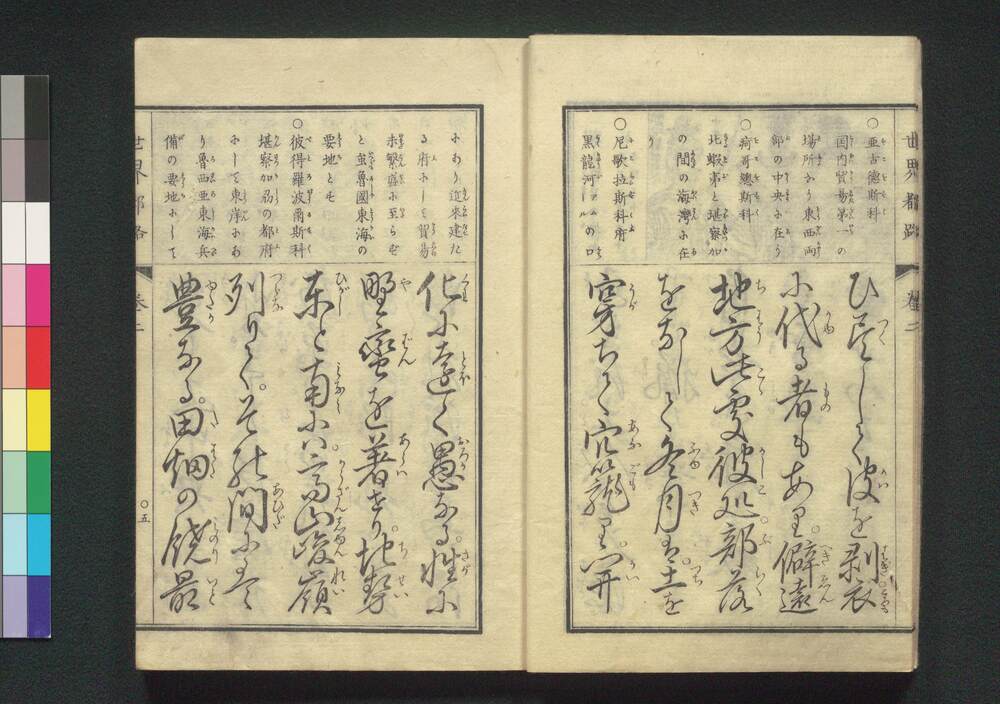 世界都路
巻二
○亜古德斯科
国内貿易第一の
場所なり東西両
部の中央に在り
○疴哥德斯科
北蝦夷と堪察加
の間の海湾に在
り
○尼歌拉斯科府
黒龍河アムールの口
ひ尽して彼を剥衣
に代る者もあり。僻遠
地方此處彼処部落
をなして冬月は。土を
穿ちて穴籠り。
にあり近来建た
る府にして貿易
未繁盛に至らせ
と虽魯國東海の
要地とせ
○彼得羅波爾斯科
堪察加島の都府
にして東洋にお
り魯西亜東海兵
備の要地にして
化に遠く愚なる。性に
野蛮を著せり。地勢
東と南には。高山峻嶺
列りて。其間に
豊なる。田畑の饒最
世界都路
巻二
○五